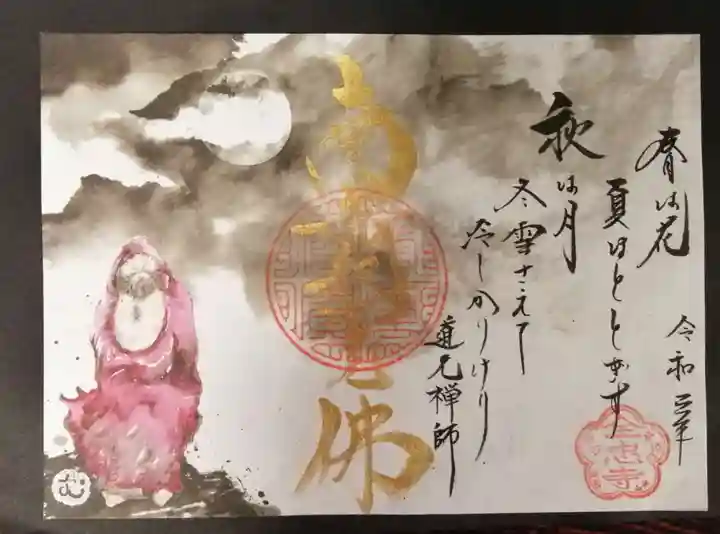 令和三年
春は花
夏ほととぎす
秋は月
冬雪さえて
冷しかりけり
道元禅師
南
佛
全忠寺
む